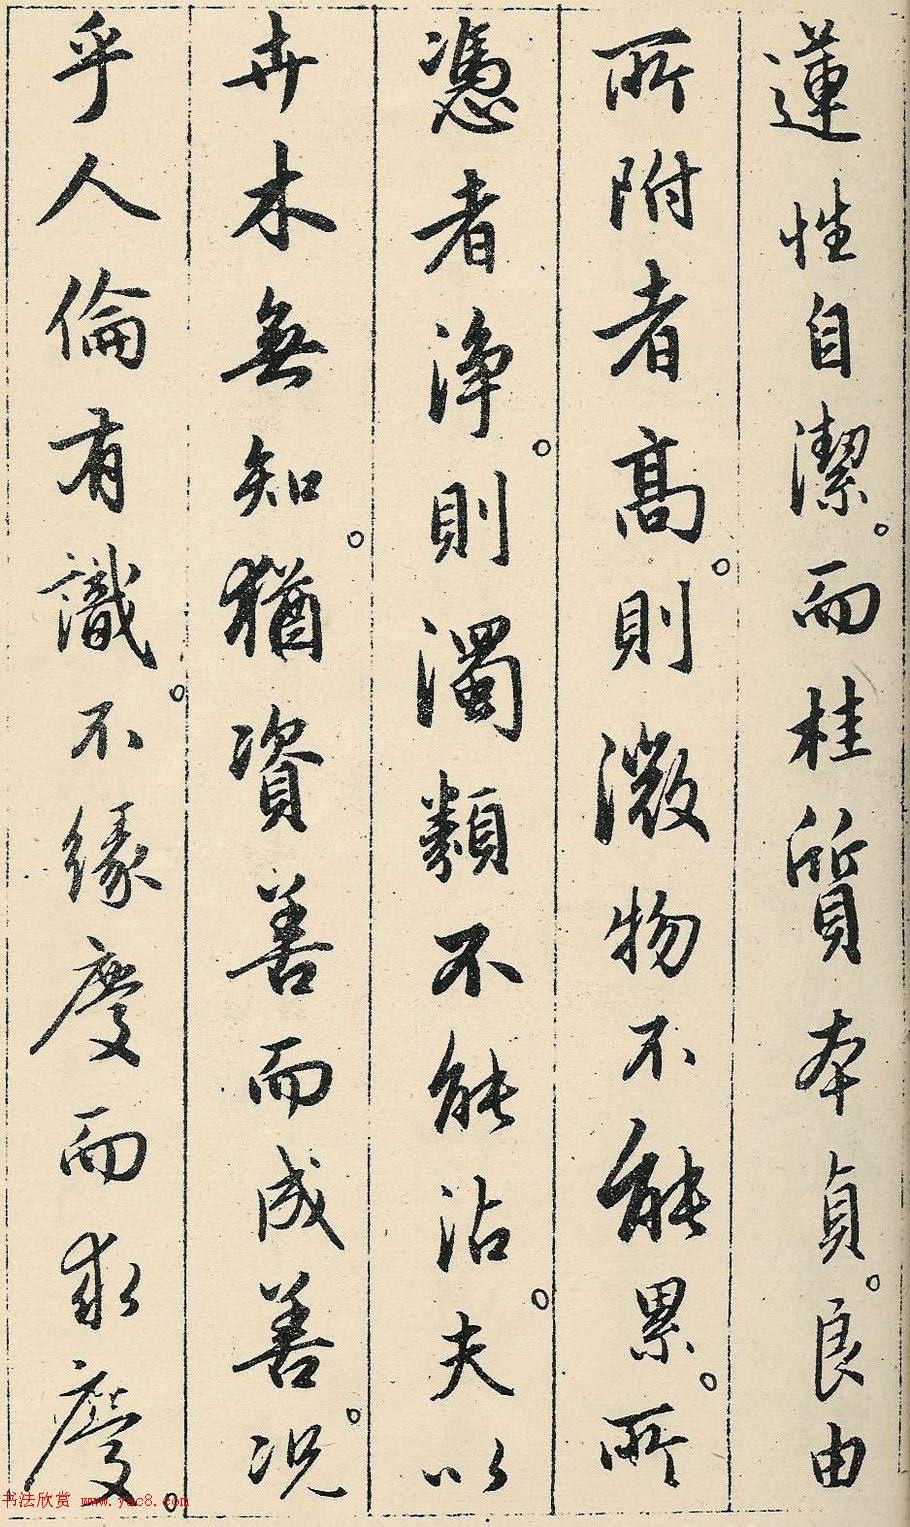 蓮性自潔。而桂質本貞。良由
所附者高。則微物不能累。所
憑者淨。則濁類不能沾。夫以
卉木無知。猶資善而成善。況
乎人倫有識。不緣慶而求慶。
书法欣赏 www.yac8.com